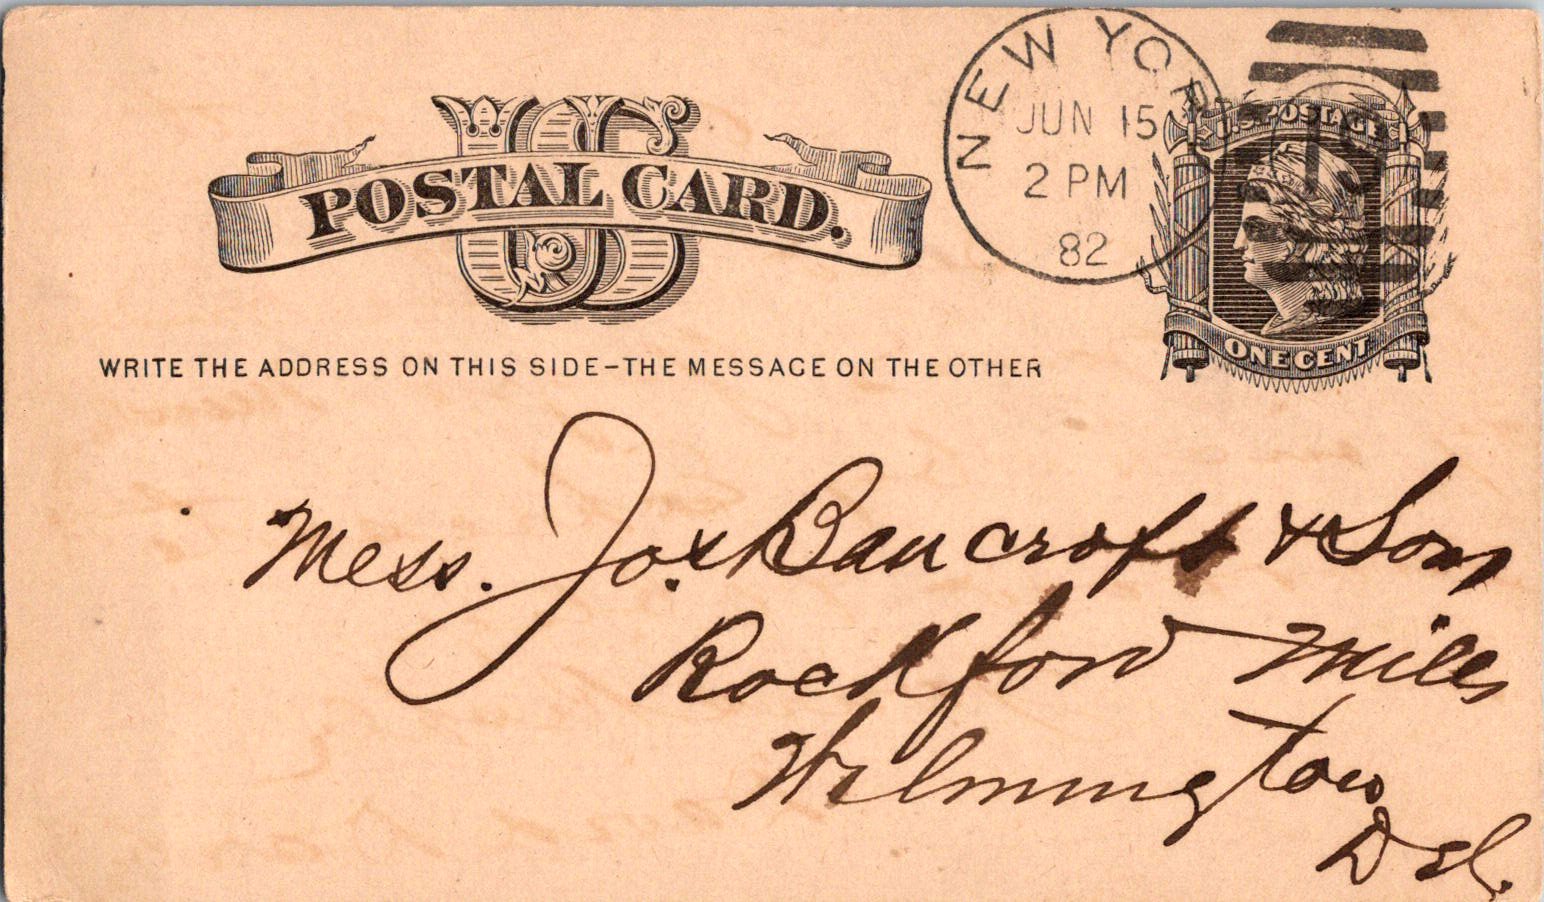 US
POSTAL CARD.
NEW YORK
JUN 15
2 PM
82
U.S. POSTAGE
ONE CENT
WRITE THE ADDRESS ON THIS SIDE-THE MESSAGE ON THE OTHER
Mess. Jos Bancroft & Sons
Rockford Mills
Wilmington
Del.